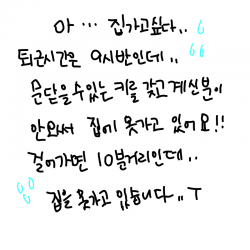 아 ... 집가고싶다..
퇴근시간은 9시반인데..
문닫을수있는 키를 갖고계신분이
안와서 집에 못가고 있어요!!
걸어가면 10분거리인데..
집을 못가고 있습니다..ㅜ